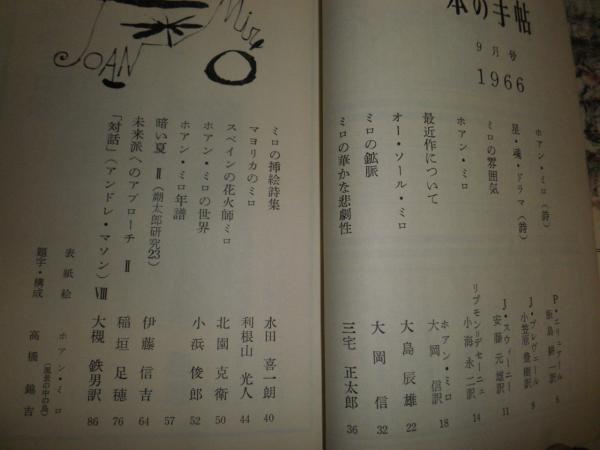 本の手帖
9月号
1966
ホアン・ミロ(詩) P・エリュアール 飯島耕一訳 8
星・魂・ドラマ(詩) J・プレヴェール 小笠原豊樹訳 9
ミロの雰囲気 J・スウィーニー 安藤元雄訳 11
ホアン・ミロ リブモン=デセーニュ 小海永二訳 14
最近作について ホアン・ミロ 大岡信訳 18
オー・ソール・ミロ 大島辰雄 22
ミロの鉱脈 大岡信 32
ミロの華かな悲劇性 三宅正太郎 36
JOAN Miró
ミロの挿絵詩集 水田喜一朗 40
マヨリカのミロ 利根山光人 44
スペインの花火師ミロ 北園克衛 50
ホアン・ミロの世界 小浜俊郎 52
ホアン・ミロ年譜 57
暗い夏 Ⅱ(朔太郎研究23) 伊藤信吉 64
未来派へのアプローチ Ⅱ 稲垣足穂 76
「対話」(アンドレ・マソン) Ⅷ 大槻鉄男訳 86
表紙絵 ホアン・ミロ
(風景の中の鳥)
題字・構成 高橋錦吉